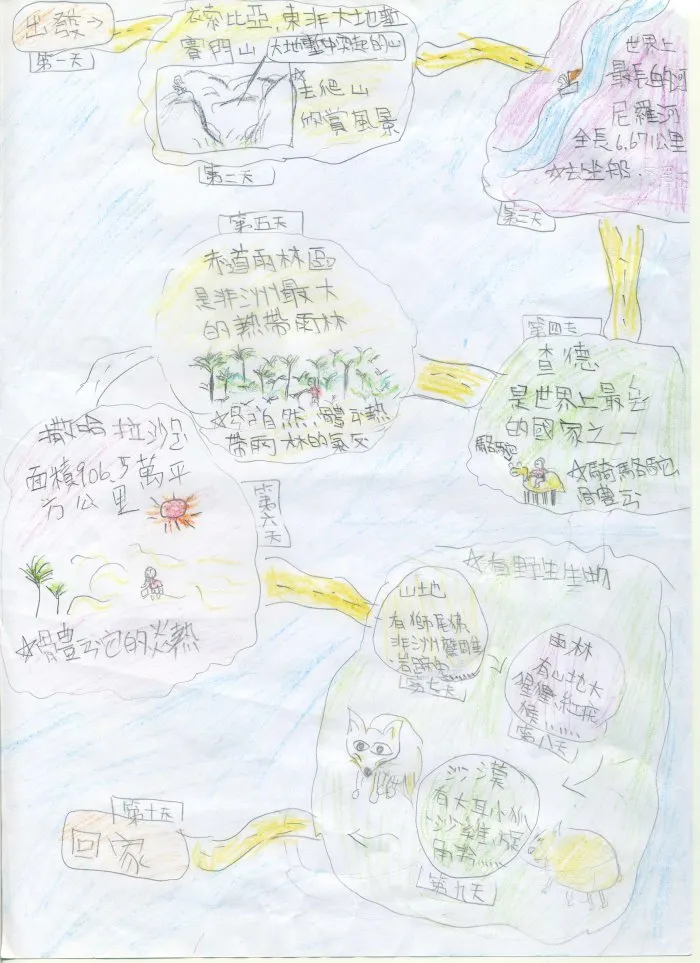 出發→
第一天
衣索比亞,東非大地塹
賽門山
大地塹中突起的山
☆去爬山
欣賞風景
第二天
世界上
最長的河
尼羅河
全長6,671公里
☆去坐船
第三天
第四天
查德
是世界上最窮
的國家之一
駱駝
☆騎駱駝
第五天
赤道雨林區
是非洲最大
的熱帶雨林
帶雨林的氣
第六天
撒哈拉沙
面積906.5萬平
方公里
☆體云它的炎熱
☆有野生生物
山地
有獅尾狒
非洲
第七天
雨林
有山地大
猩猩、紅疣
猴......
第八天
沙漠
有大耳小狐
沙
第九天
第十天
回家